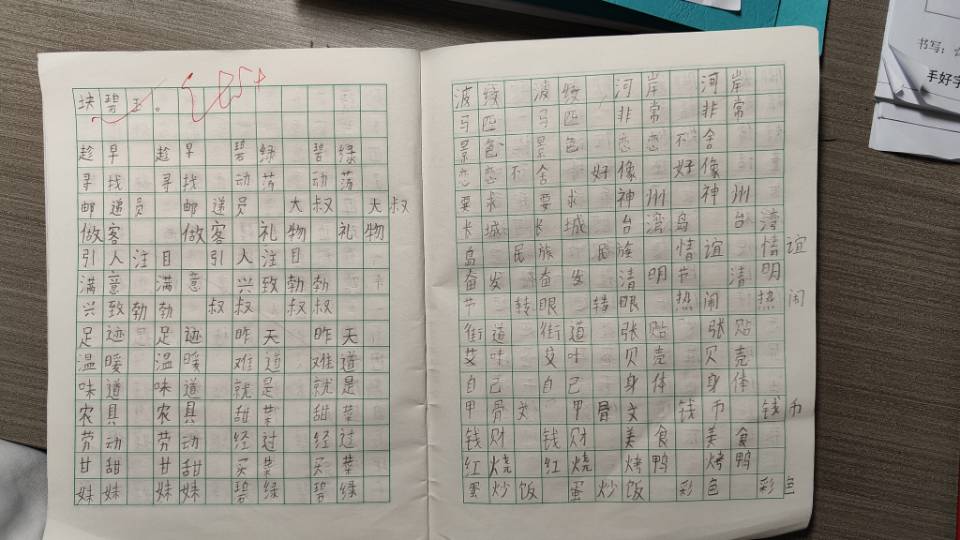 块碧玉。
85+
趁早 趁早 碧绿 碧绿
寻找 寻找 动荡 动荡
邮递员 邮递员 大叔 大叔
做客 做客 礼物 礼物
引人注目 引人注目
满意 满意 兴致勃勃
兴致勃勃 叔叔 叔叔
足迹 足迹 昨天 昨天
温暖 温暖 难道 难道
味道 味道 就是 就是
农具 农具 甜菜 甜菜
劳动 劳动 经过 经过
甘甜 甘甜 买菜 买菜
妹妹 妹妹 碧绿 碧绿
波纹 波纹 河岸 河岸
马匹 马匹 非常 非常
景色 景色 恋恋不舍
恋恋不舍 好像 好像
要求 要求 神州 神州
长城 长城 台湾岛 台湾
岛 民族 民族 情谊 情谊
奋发 奋发 清明节 清明
节 转眼 转眼 热闹 热闹
街道 街道 张贴 张贴
艾味 艾味 贝壳 贝壳
自己 自己 身体 身体
甲骨文 甲骨文 钱币 钱币
钱财 钱财 美食 美食
红烧 红烧 烤鸭 烤鸭
蛋炒饭 蛋炒饭 彩色 彩色
书写:
手好字